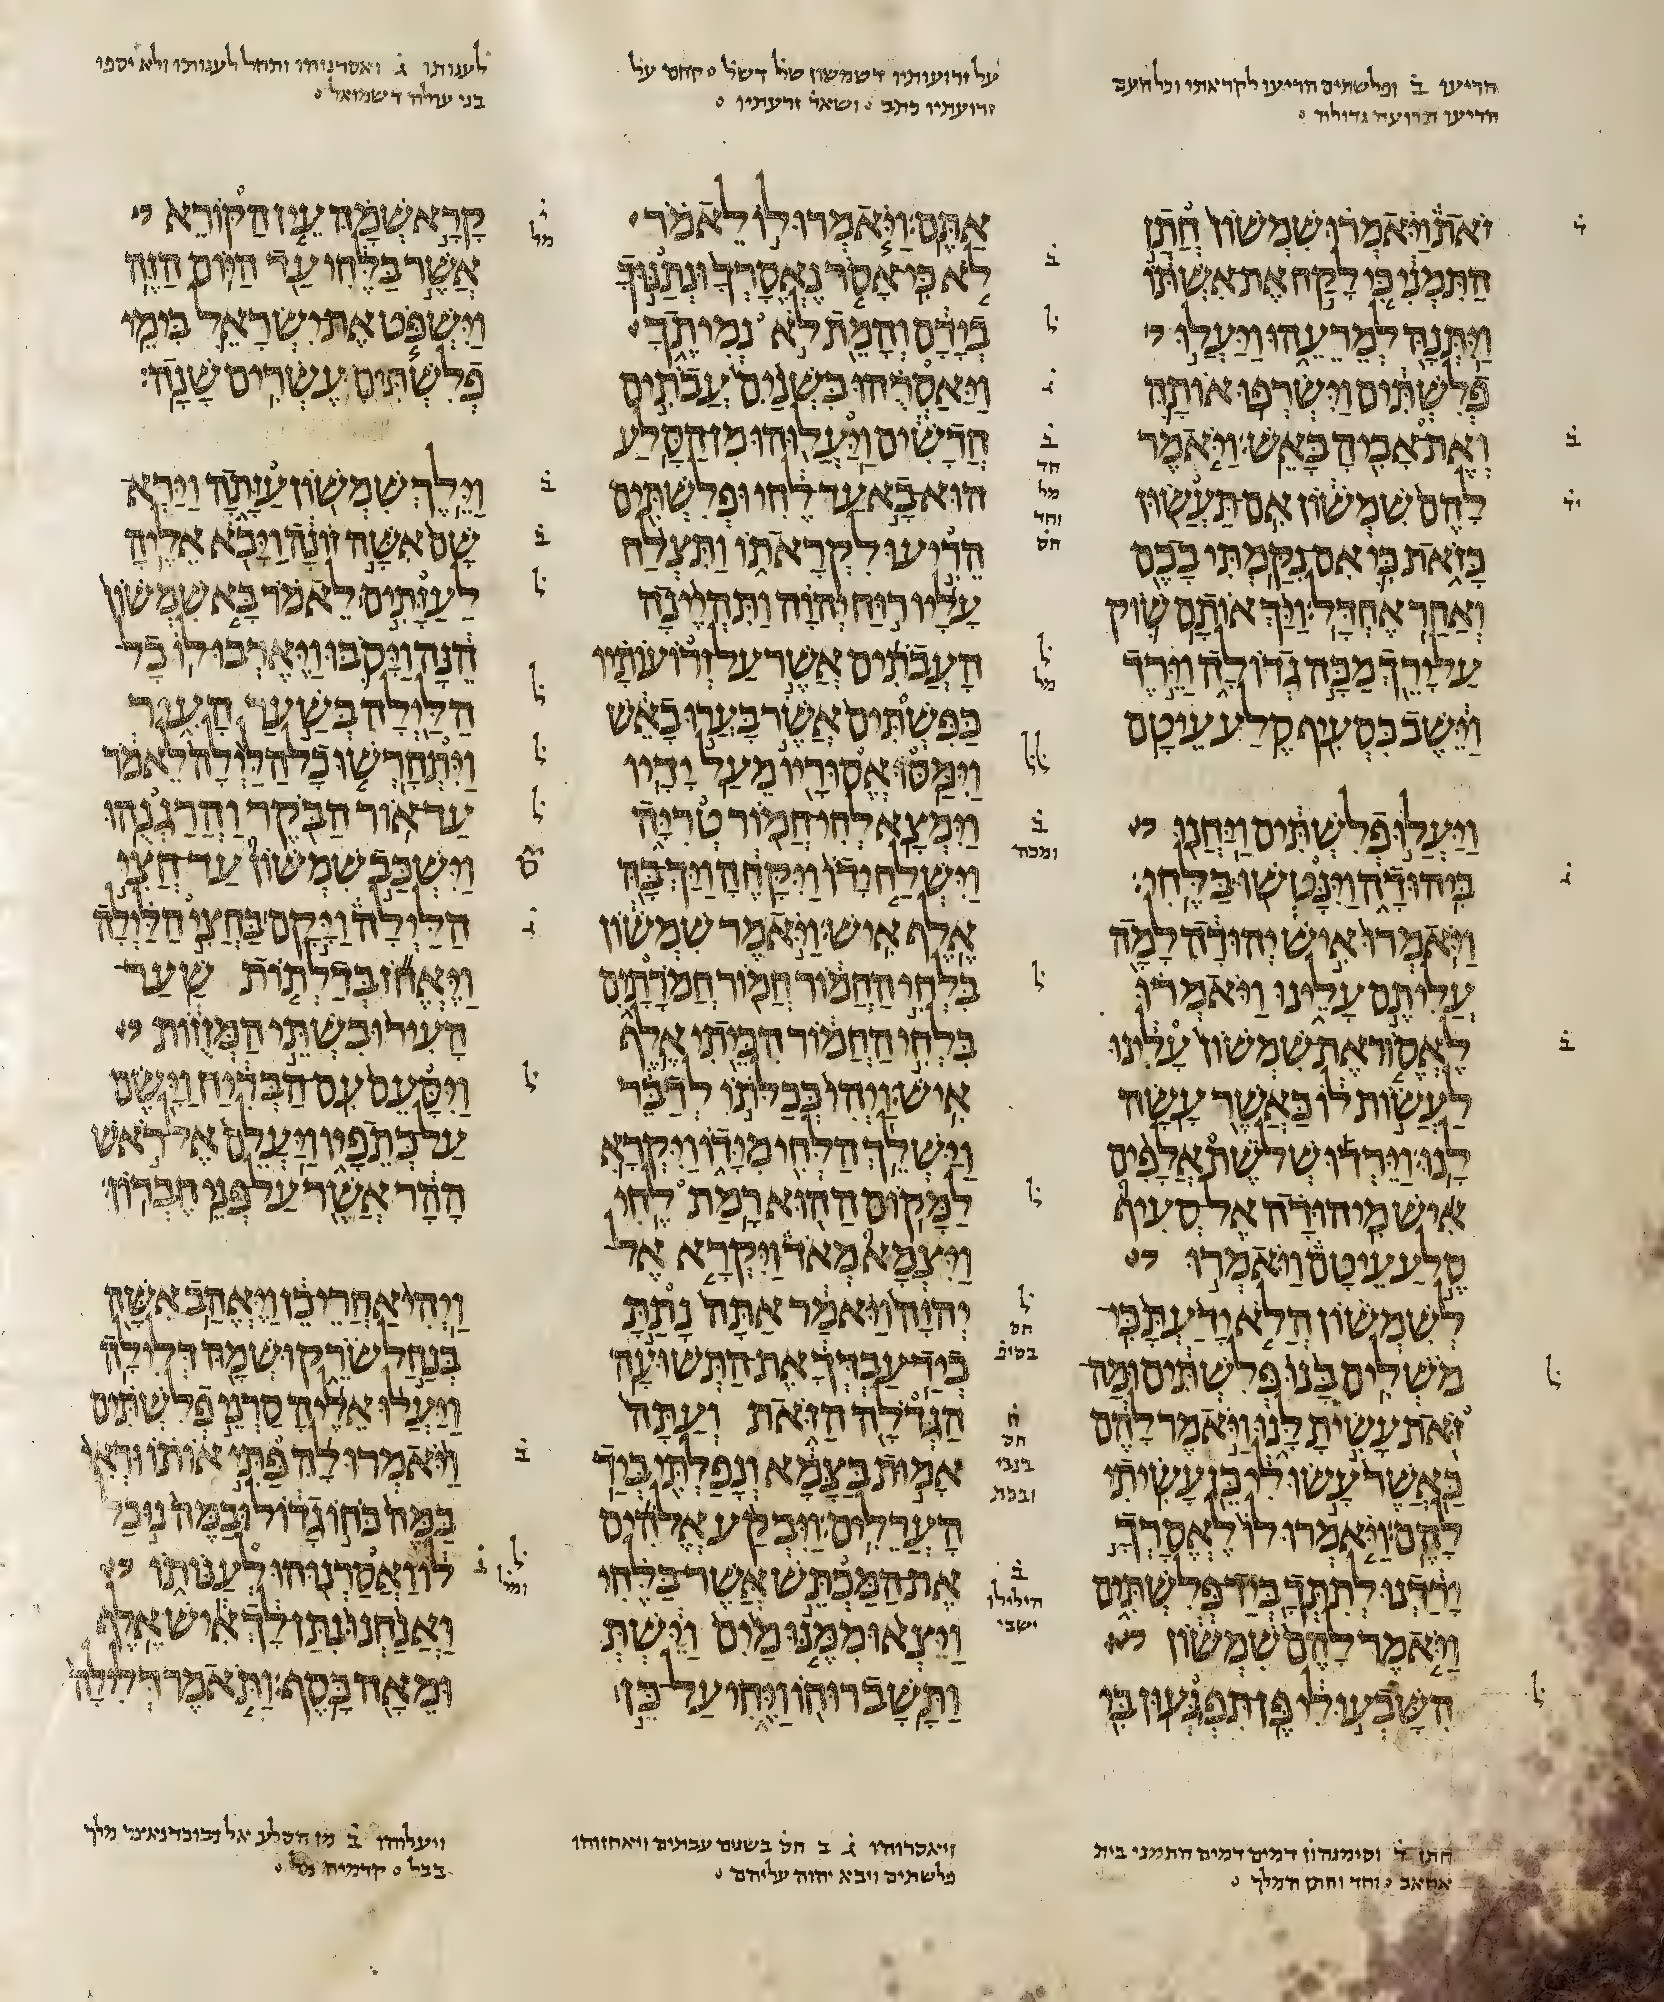 הריעו ב ופלשתים הריעו לקראתו וכל העם
הריעו תרועה גדולה
על זרועותיו דשמשון של דשל קחם על
זרועתיו כתב ושאר זרעתיו
לענותו ג ואסרנוהו ותחל לענותו ולא יספו
בני עולה דשמואל
זאת ויאמרו שמשון חתן
התמני כי לקח את אשתו
ויתנה למרעהו ויעלו
פלשתים וישרפו אותה
ואת אביה באש׃ ויאמר
להם שמשון אם תעשון
כזאת כי אם נקמתי בכם
ואחר אחדל׃ ויך אותם שוק
על ירך מכה גדולה וירד
וישב בסעיף סלע עיטם
ויעלו פלשתים ויחנו
ביהודה וינטשו בלחי׃
ויאמרו איש יהודה למה
עליתם עלינו ויאמרו
לאסור את שמשון עלינו
לעשות לו כאשר עשה
לנו׃ וירדו שלשת אלפים
איש מיהודה אל סעיף
סלע עיטם ויאמרו
לשמשון הלא ידעת כי
משלים בנו פלשתים ומה
זאת עשית לנו ויאמר להם
כאשר עשו לי כן עשיתי
להם׃ ויאמרו לו לאסרך
ירדנו לתתך ביד פלשתים
ויאמר להם שמשון
השבעו לי פן תפגעון בי
אתם׃ ויאמרו לו לאמר
לא כי אסר נאסרך ונתנוך
בידם והמת לא נמיתך
ויאסרהו בשנים עבתים
חדשים ויעלוהו מן הסלע
הוא בא עד לחי ופלשתים
הריעו לקראתו ותצלח
עליו רוח יהוה ותהיינה
העבתים אשר על זרועותיו
כפשתים אשר בערו באש
וימסו אסוריו מעל ידיו
וימצא לחי חמור טריה
וישלח ידו ויקחה ויך בה
אלף איש׃ ויאמר שמשון
בלחי החמור חמור חמרתים
בלחי החמור הכיתי אלף
איש׃ ויהי ככלתו לדבר
וישלך הלחי מידו ויקרא
למקום ההוא רמת לחי
ויצמא מאד ויקרא אל
יהוה ויאמר אתה נתת
ביד עבדך את התשועה
הגדלה הזאת ועתה
אמות בצמא ונפלתי ביד
הערלים׃ ויבקע אלהים
את המכתש אשר בלחי
ויצאו ממנו מים וישת
ותשב רוחו ויחי על כן
קרא שמה עין הקורא
אשר בלחי עד היום הזה
וישפט את ישראל בימי
פלשתים עשרים שנה׃
וילך שמשון עזתה וירא
שם אשה זונה ויבא אליה
לעזתים לאמר בא שמשון
הנה ויסבו ויארבו לו כל
הלילה בשער העיר
ויתחרשו כל הלילה לאמר
עד אור הבקר והרגנהו
וישכב שמשון עד חצי
הלילה ויקם בחצי הלילה
ויאחז בדלתות שער
העיר ובשתי המזוזות
ויסעם עם הבריח וישם
על כתפיו ויעלם אל ראש
ההר אשר על פני חברון׃
ויהי אחרי כן ויאהב אשה
בנחל שרק ושמה דלילה
ויעלו אליה סרני פלשתים
ויאמרו לה פתי אותו וראי
במה כחו גדול ובמה נוכל
לו ואסרנוהו לענותו
ואנחנו נתן לך איש אלף
ומאה כסף׃ ותאמר דלילה
חתן ד וסימנהון דמים דמים התמני בית
אחאב וחד וחתן המלך
ויאסרוהו ג ב חס בשנים עבתים ויאחזוהו
פלשתים ויבא יהוה עליהם
ויעלוהו ב מן הסלע אל נבוכדנאצר מלך
בבל קדמיה מל